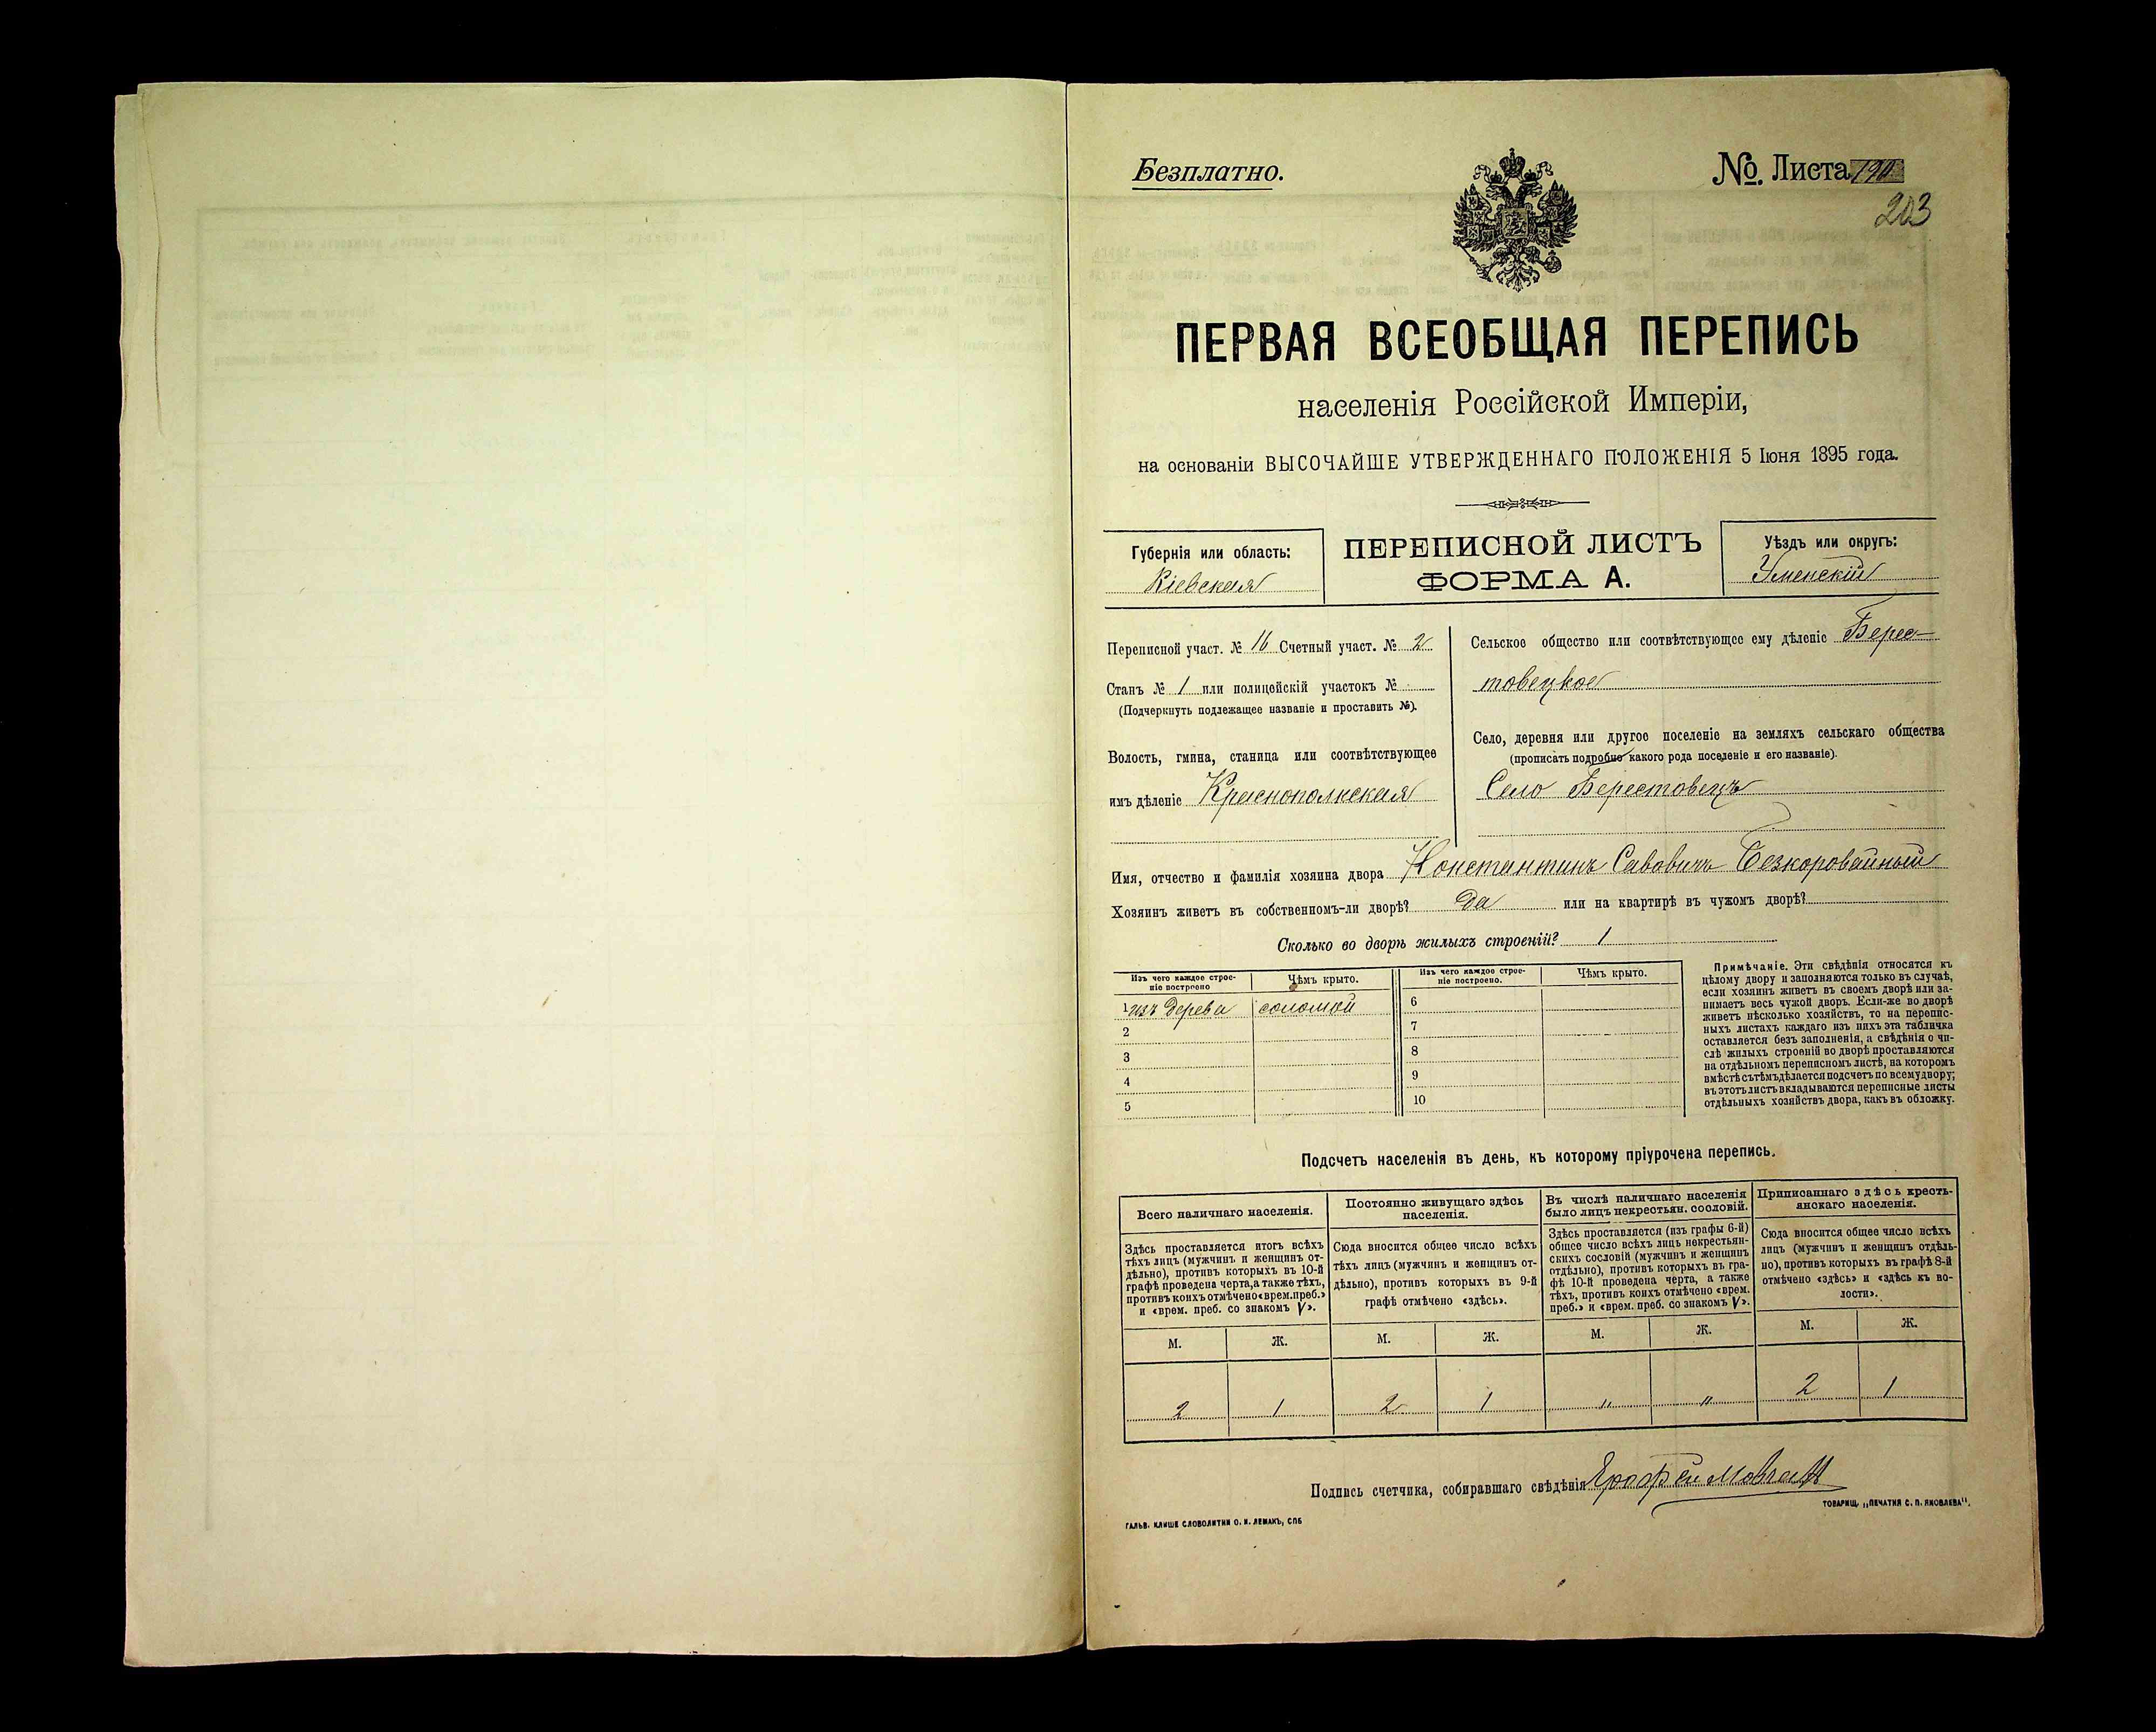 Безплатно.
№. Листа 190
203
ПЕРВАЯ ВСЕОБЩАЯ ПЕРЕПИСЬ
населенія Россійской Имперіи,
на основаніи ВЫСОЧАЙШЕ УТВЕРЖДЕННАГО ПОЛОЖЕНІЯ 5 Іюня 1895 года.
Губернія или область:
Кіевская
ПЕРЕПИСНОЙ ЛИСТЪ
ФОРМА А.
Уѣздъ или округъ:
Уменскій
Переписной участ. № 16 Счетный участ. № 2
Станъ № 1 или полицейскій участокъ №
(Подчеркнуть подлежащее названіе и проставить №).
Волость, гмина, станица или соотвѣтствующее
имъ дѣленіе Краснополкская
Сельское общество или соотвѣтствующее ему дѣленіе Берес-
товецкое
Село, деревня или другое поселеніе на земляхъ сельскаго общества
(прописать подробно какого рода поселеніе и его названіе).
Село Берестовецъ
Имя, отчество и фамилія хозяина двора Константинъ Савовичъ Безкоровайный
Хозяинъ живетъ въ собственномъ-ли дворѣ? Да или на квартирѣ въ чужомъ дворѣ?
Сколько во дворѣ жилыхъ строеній? 1
Изъ чего каждое строе-
ніе построено
Чѣмъ крыто.
Изъ чего каждое строе-
ніе построено.
Чѣмъ крыто.
1 изъ дерева соломой
2
3
4
5
6
7
8
9
10
Примѣчаніе. Эти свѣдѣнія относятся къ
цѣлому двору и заполняются только въ случаѣ,
если хозяинъ живетъ въ своемъ дворѣ или за-
нимаетъ весь чужой дворъ. Если-же во дворѣ
живетъ нѣсколько хозяйствъ, то на перепис-
ныхъ листахъ каждаго изъ нихъ эта табличка
оставляется безъ заполненія, а свѣдѣнія о чи-
слѣ жилыхъ строеній во дворѣ проставляются
на отдѣльномъ переписномъ листѣ, на которомъ
вмѣстѣ съ тѣмъ дѣлается подсчетъ по всему двору;
въ этотъ листъ вкладываются переписные листы
отдѣльныхъ хозяйствъ двора, какъ въ обложку.
Подсчетъ населенія въ день, къ которому пріурочена перепись.
Всего наличнаго населенія.
Здѣсь проставляется итогъ всѣхъ
тѣхъ лицъ (мужчинъ и женщинъ от-
дѣльно), противъ которыхъ въ 10-й
графѣ проведена черта, а также тѣхъ,
противъ коихъ отмѣчено «врем. преб.»
и «врем. преб. со знакомъ V».
Постоянно живущаго здѣсь
населенія.
Сюда вносится общее число всѣхъ
тѣхъ лицъ (мужчинъ и женщинъ от-
дѣльно), противъ которыхъ въ 9-й
графѣ отмѣчено «здѣсь».
Въ числѣ наличнаго населенія
было лицъ некрестьян. сословій.
Здѣсь проставляется (изъ графы 6-й)
общее число всѣхъ лицъ некрестьян-
скихъ сословій (мужчинъ и женщинъ
отдѣльно), противъ которыхъ въ гра-
фѣ 10-й проведена черта, а также
тѣхъ, противъ коихъ отмѣчено «врем.
преб.» и «врем. преб. со знакомъ V».
Приписаннаго здѣсь кресть-
янскаго населенія.
Сюда вносится общее число всѣхъ
лицъ (мужчинъ и женщинъ отдѣль-
но), противъ которыхъ въ графѣ 8-й
отмѣчено «здѣсь» и «здѣсь къ во-
лости».
М. Ж. М. Ж. М. Ж. М. Ж.
2 1 2 1 " " 2 1
Подпись счетчика, собиравшаго свѣдѣнія
ТОВАРИЩ. „ПЕЧАТНЯ С. П. ЯКОВЛЕВА".
ГАЛЬВ. КЛИШЕ СЛОВОЛИТНИ О. И. ЛЕМАНЪ, СПБ